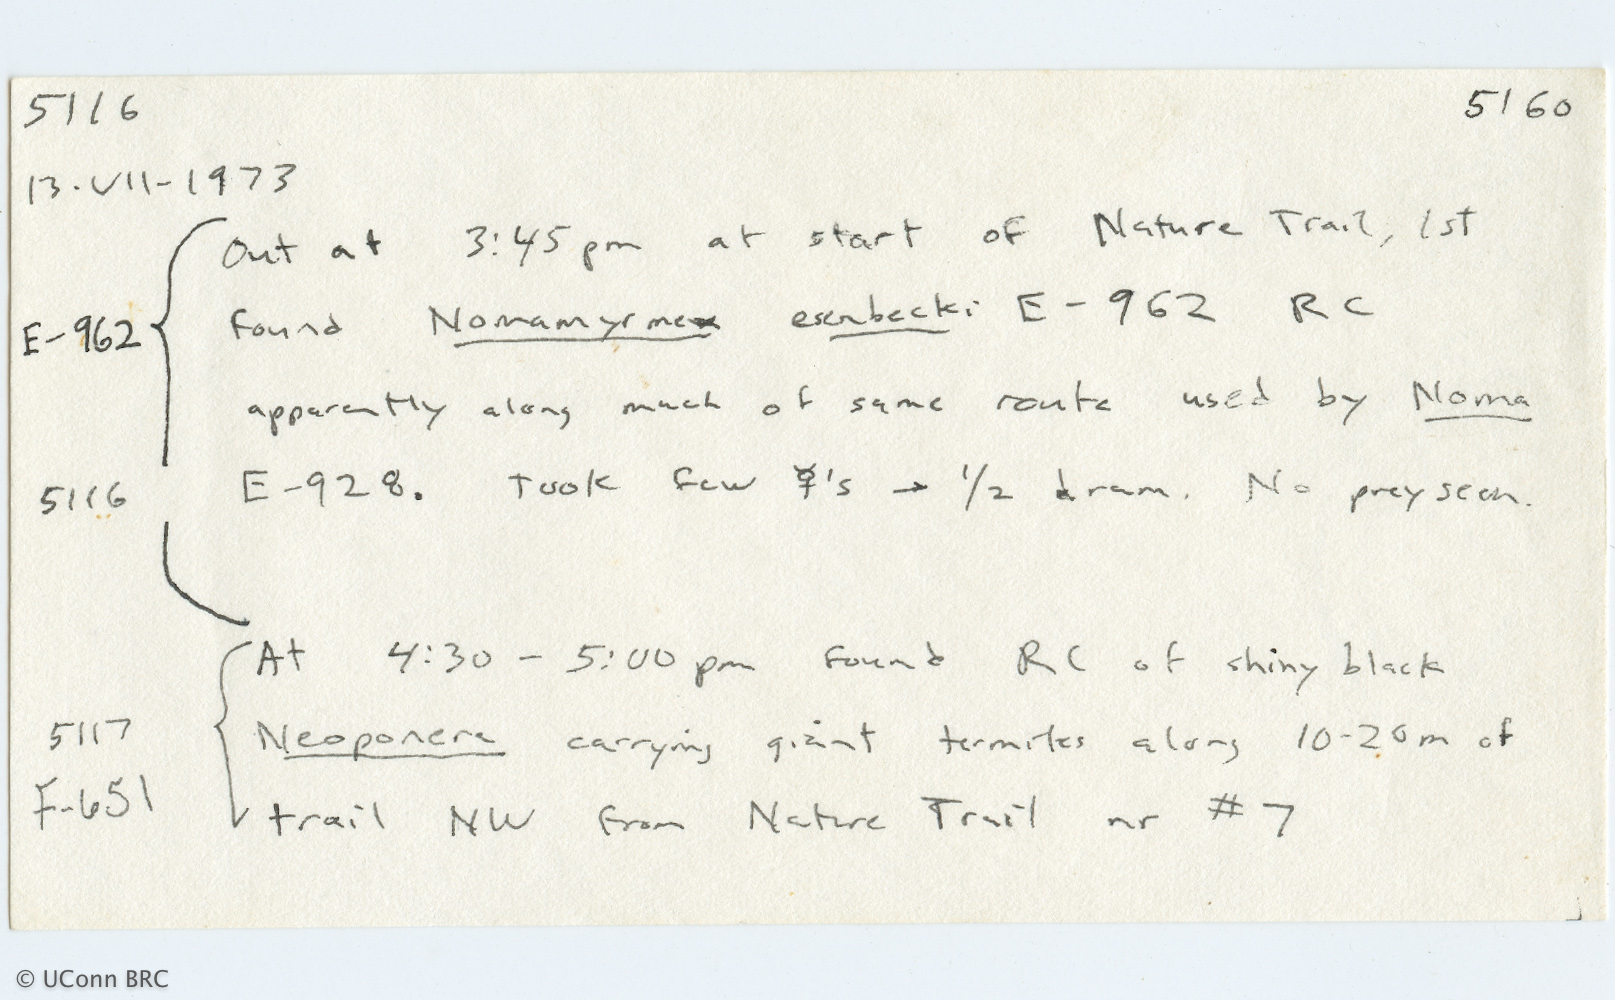 5116 5160
13.VII-1973
Out at 3:45 pm at start of Nature Trail, 1st
E-962 found Nomamyrmex esenbecki E-962 RC
apparently along much of same route used by Noma
5116 E-928. Took few ☿'s → 1/2 dram. No prey seen.
At 4:30 - 5:00 pm found RC of shiny black
5117 Neoponera carrying giant termites along 10-20m of
F-651 trail NW from Nature Trail nr #7
© UConn BRC